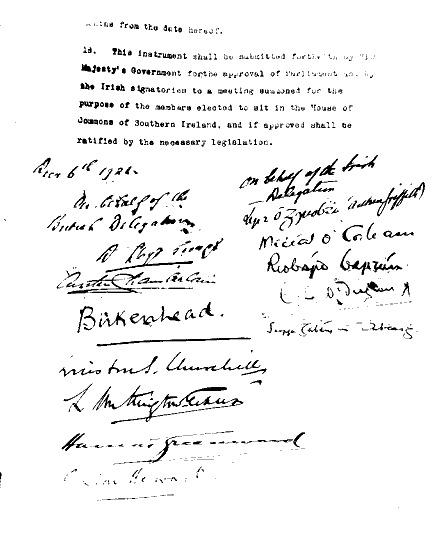 from the date hereof.
18. This instrument shall be submitted forthwith by His
Majesty's Government forthe approval of Parliament and by
the Irish signatories to a meeting summoned for the
purpose of the members elected to sit in the House of
Commons of Southern Ireland, and if approved shall be
ratified by the necessary legislation.
6th 1921.
On behalf of the
British Delegation
D Lloyd George
Austen Chamberlain
Birkenhead.
Winston S. Churchill
L Worthington-Evans
Hamar Greenwood
Gordon Hewart
On behalf of the Irish
Delegation
(Arthur Griffith)
Mícheál Ó
Riobárd